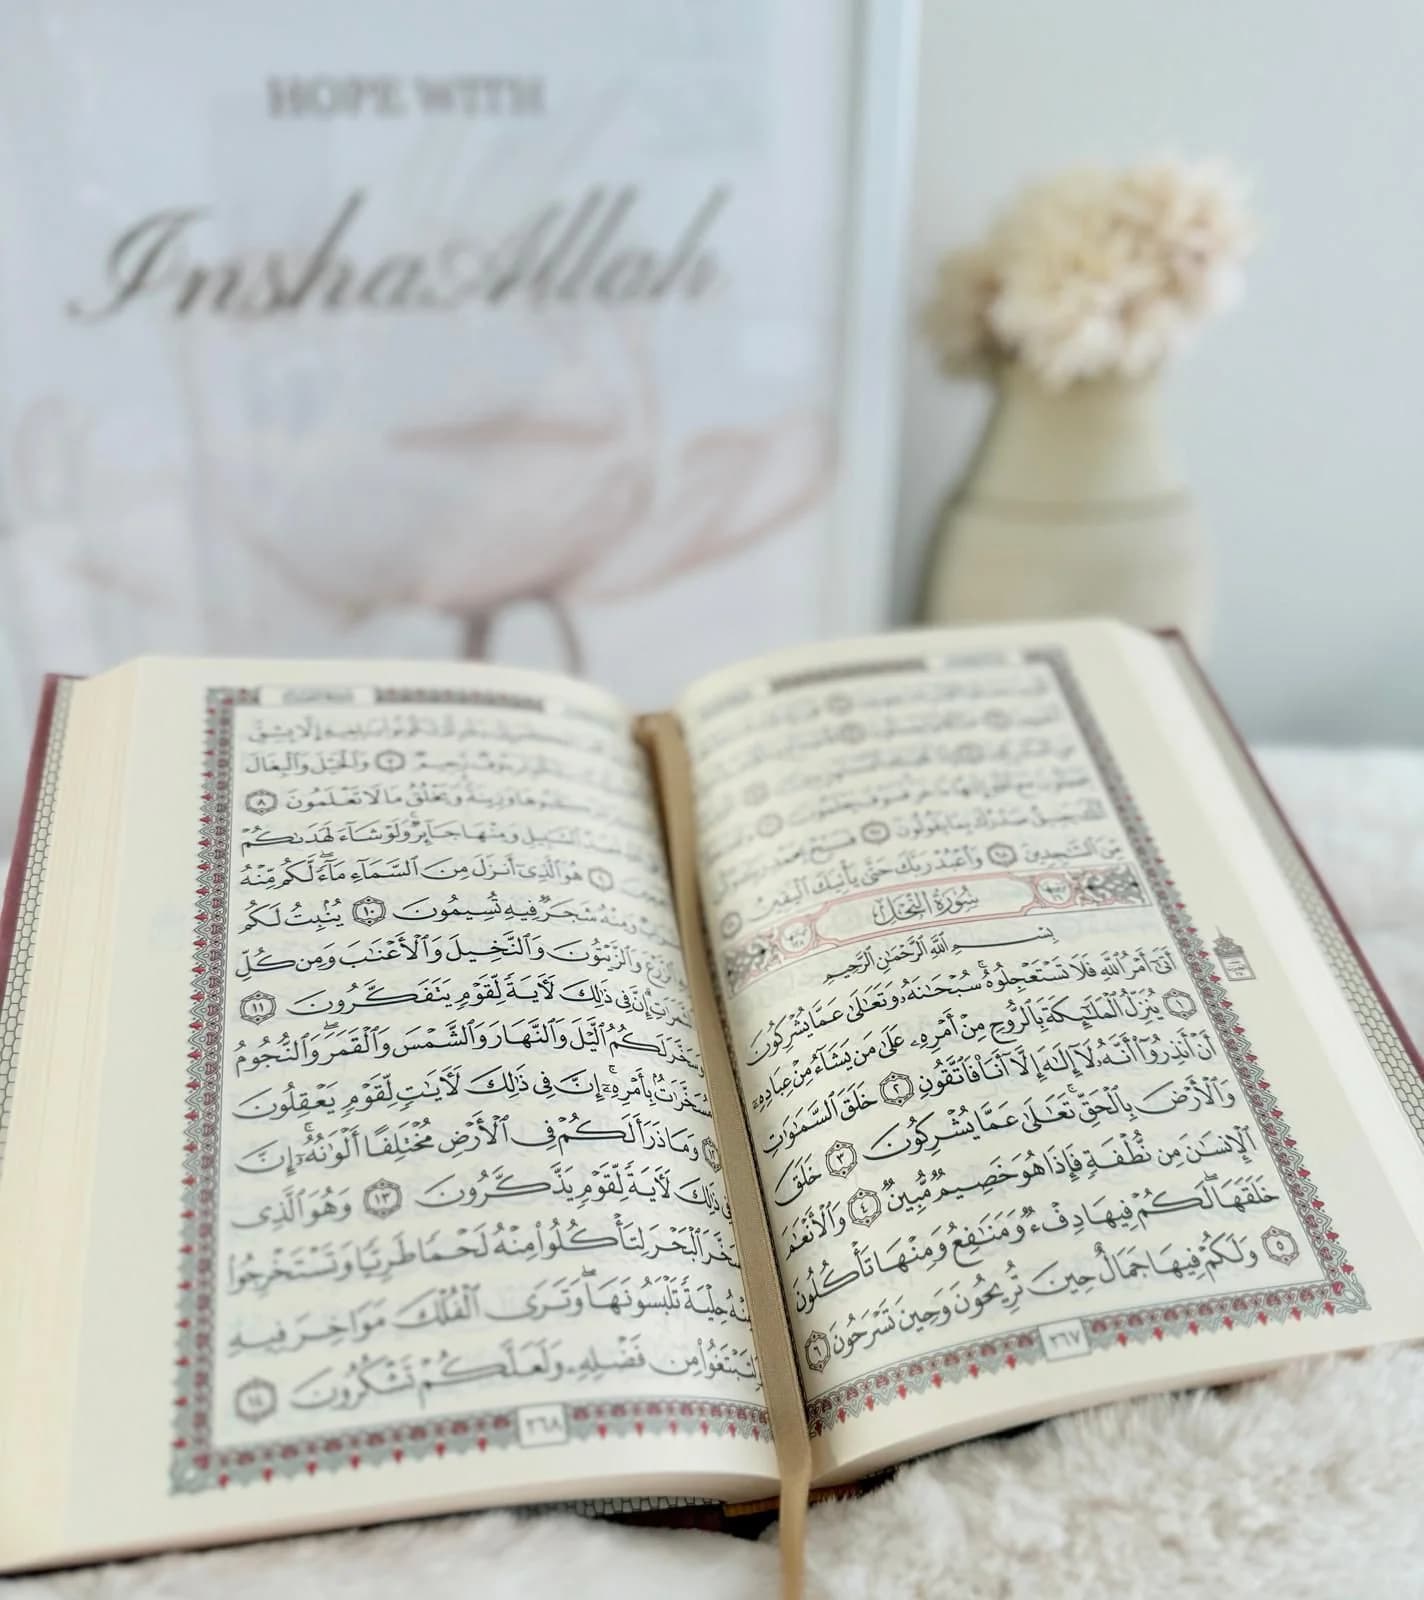 HOPE WITH
InshaAllah
مِّنَ ٱلسَّٰجِدِينَ ٩٨ وَٱعۡبُدۡ رَبَّكَ حَتَّىٰ يَأۡتِيَكَ ٱلۡيَقِينُ
سُورَةُ النَّحۡلِ
بِسۡمِ ٱللَّهِ ٱلرَّحۡمَٰنِ ٱلرَّحِيمِ
أَتَىٰٓ أَمۡرُ ٱللَّهِ فَلَا تَسۡتَعۡجِلُوهُۚ سُبۡحَٰنَهُۥ وَتَعَٰلَىٰ عَمَّا يُشۡرِكُونَ
١ يُنَزِّلُ ٱلۡمَلَٰٓئِكَةَ بِٱلرُّوحِ مِنۡ أَمۡرِهِۦ عَلَىٰ مَن يَشَآءُ مِنۡ عِبَادِهِۦٓ
أَنۡ أَنذِرُوٓاْ أَنَّهُۥ لَآ إِلَٰهَ إِلَّآ أَنَا۠ فَٱتَّقُونِ ٢ خَلَقَ ٱلسَّمَٰوَٰتِ
وَٱلۡأَرۡضَ بِٱلۡحَقِّۚ تَعَٰلَىٰ عَمَّا يُشۡرِكُونَ ٣ خَلَقَ
ٱلۡإِنسَٰنَ مِن نُّطۡفَةٖ فَإِذَا هُوَ خَصِيمٞ مُّبِينٞ ٤ وَٱلۡأَنۡعَٰمَ
خَلَقَهَاۖ لَكُمۡ فِيهَا دِفۡءٞ وَمَنَٰفِعُ وَمِنۡهَا تَأۡكُلُونَ
٥ وَلَكُمۡ فِيهَا جَمَالٌ حِينَ تُرِيحُونَ وَحِينَ تَسۡرَحُونَ ٦
٣٦٧
وَٱلۡخَيۡلَ وَٱلۡبِغَالَ
وَزِينَةٗۚ وَيَخۡلُقُ مَا لَا تَعۡلَمُونَ ٨
ٱلسَّبِيلِ وَمِنۡهَا جَآئِرٞۚ وَلَوۡ شَآءَ لَهَدَىٰكُمۡ
٩ هُوَ ٱلَّذِيٓ أَنزَلَ مِنَ ٱلسَّمَآءِ مَآءٗۖ لَّكُم مِّنۡهُ
شَرَابٞ وَمِنۡهُ شَجَرٞ فِيهِ تُسِيمُونَ ١٠ يُنۢبِتُ لَكُم
ٱلزَّرۡعَ وَٱلزَّيۡتُونَ وَٱلنَّخِيلَ وَٱلۡأَعۡنَٰبَ وَمِن كُلِّ
ٱلثَّمَرَٰتِۚ إِنَّ فِي ذَٰلِكَ لَأٓيَةٗ لِّقَوۡمٖ يَتَفَكَّرُونَ ١١
وَسَخَّرَ لَكُمُ ٱلَّيۡلَ وَٱلنَّهَارَ وَٱلشَّمۡسَ وَٱلۡقَمَرَۖ وَٱلنُّجُومُ
مُسَخَّرَٰتُۢ بِأَمۡرِهِۦٓۚ إِنَّ فِي ذَٰلِكَ لَأٓيَٰتٖ لِّقَوۡمٖ يَعۡقِلُونَ
١٢ وَمَا ذَرَأَ لَكُمۡ فِي ٱلۡأَرۡضِ مُخۡتَلِفًا أَلۡوَٰنُهُۥٓۚ إِنَّ
فِي ذَٰلِكَ لَأٓيَةٗ لِّقَوۡمٖ يَذَّكَّرُونَ ١٣ وَهُوَ ٱلَّذِي
سَخَّرَ ٱلۡبَحۡرَ لِتَأۡكُلُواْ مِنۡهُ لَحۡمٗا طَرِيّٗا وَتَسۡتَخۡرِجُواْ
مِنۡهُ حِلۡيَةٗ تَلۡبَسُونَهَاۖ وَتَرَى ٱلۡفُلۡكَ مَوَاخِرَ فِيهِ
وَلِتَبۡتَغُواْ مِن فَضۡلِهِۦ وَلَعَلَّكُمۡ تَشۡكُرُونَ ١٤
٣٦٨